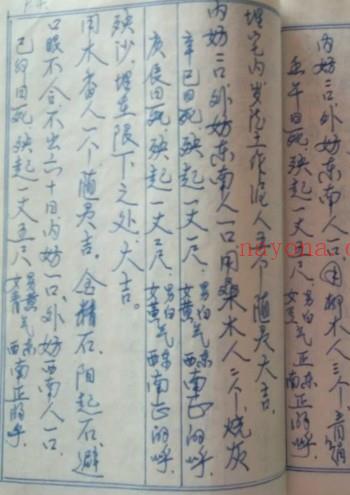 己卯日死、殃起一丈五尺、男黄女青气东西南正的呼、
口眼不合、不出六十日、内妨一口、外妨西南人一口、
用木香人一个随灵大吉、金精石、阳起石、避
殃沙、埋在限下之处、大吉。
庚辰日死、殃起一丈二尺、男白女黄气东西南正的呼、
辛巳日死、殃起一丈一尺、男白女黄气东南正的呼、
内妨二口、外妨东南人一口用桑木人二个、烧灰
埋宅内岁德上作泥人五个随灵大吉、
壬午日死、殃起一丈尺、男白女黑气正东南正的呼、
内妨三口、外妨东南人口用柳木人三个、青绢
nayona.cn